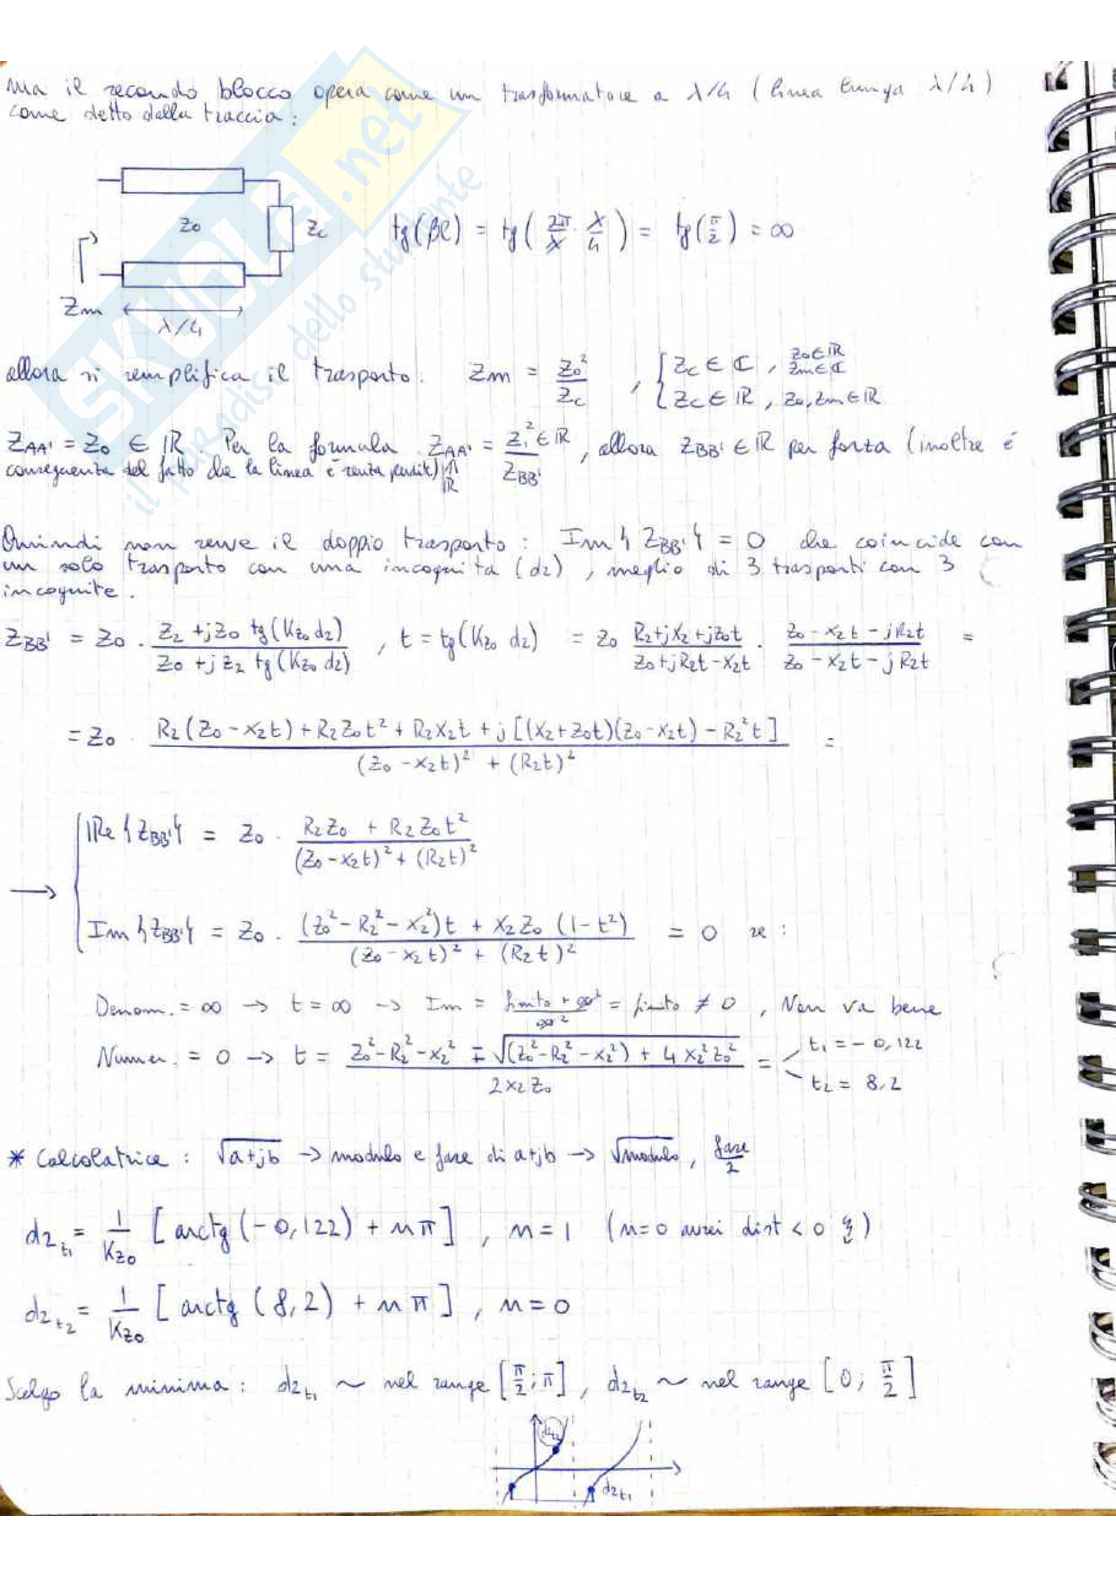 ma il secondo blocco opera come un trasformatore a λ/4 (linea lunga λ/4)
come detto dalla traccia:
Z₀ Z_c tg(βl) = tg(2π/λ · λ/4) = tg(π/2) = ∞
Zm λ/4
allora si semplifica il trasporto: Zm = Z₀²/Z_c , { Z_c ∈ ℂ , Z₀∈ℝ Zm∈ℂ
Z_c ∈ ℝ , Z₀, Zm ∈ ℝ
Z_AA' = Z₀ ∈ ℝ Per la formula Z_AA' = Z₁² ∈ ℝ / Z_BB' , allora Z_BB' ∈ ℝ per forza (inoltre è
conseguenza del fatto che la linea è senza perdite) ∈ ℝ
Quindi non serve il doppio trasporto: Im{Z_BB'} = 0 che coincide con
un solo trasporto con una incognita (d₂), meglio di 3 trasporti con 3
incognite.
Z_BB' = Z₀ · (Z₂ + jZ₀ tg(K_Z₀ d₂))/(Z₀ + jZ₂ tg(K_Z₀ d₂)) , t = tg(K_Z₀ d₂) = Z₀ (R₂+jX₂+jZ₀t)/(Z₀+jR₂t-X₂t) · (Z₀-X₂t-jR₂t)/(Z₀-X₂t-jR₂t) =
= Z₀ · (R₂(Z₀-X₂t)+R₂Z₀t²+R₂X₂t+j[(X₂+Z₀t)(Z₀-X₂t)-R₂²t])/((Z₀-X₂t)²+(R₂t)²) =
→ { Re{Z_BB'} = Z₀ · (R₂Z₀ + R₂Z₀t²)/((Z₀-X₂t)²+(R₂t)²)
Im{Z_BB'} = Z₀ · ((Z₀²-R₂²-X₂²)t + X₂Z₀(1-t²))/((Z₀-X₂t)²+(R₂t)²) = 0 se:
Denom. = ∞ → t = ∞ → Im = (finito + ∞²)/∞² = finito ≠ 0 , Non va bene
Numer. = 0 → t = (Z₀²-R₂²-X₂² ∓ √((Z₀²-R₂²-X₂²) + 4X₂²Z₀²))/(2X₂Z₀) = t₁ = -0,122
t₂ = 8,2
* Calcolatrice: √(a+jb) → modulo e fase di a+jb → √modulo, fase/2
d₂_t₁ = 1/K_Z₀ [arctg(-0,122) + nπ] , n=1 (n=0 avrei dist < 0 ↯)
d₂_t₂ = 1/K_Z₀ [arctg(8,2) + nπ] , n=0
Scelgo la minima: d₂_t₁ ~ nel range [π/2; π] , d₂_t₂ ~ nel range [0; π/2]
d₂_t₂
d₂_t₁
SKUOLA.net
il paradiso dello studente